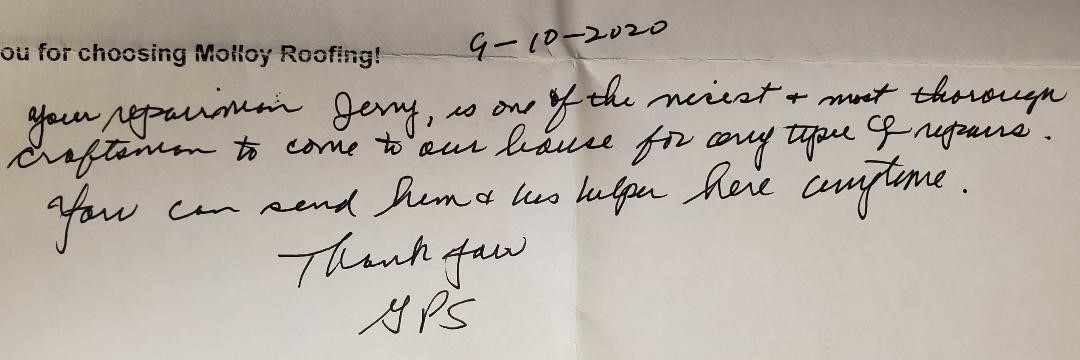 ou for choosing Molloy Roofing!
9-10-2020
your repairman Jerry, is one of the nicest + most thorough
craftsman to come to our house for any type of repairs.
You can send him & his helper here anytime.
Thank you
GPS